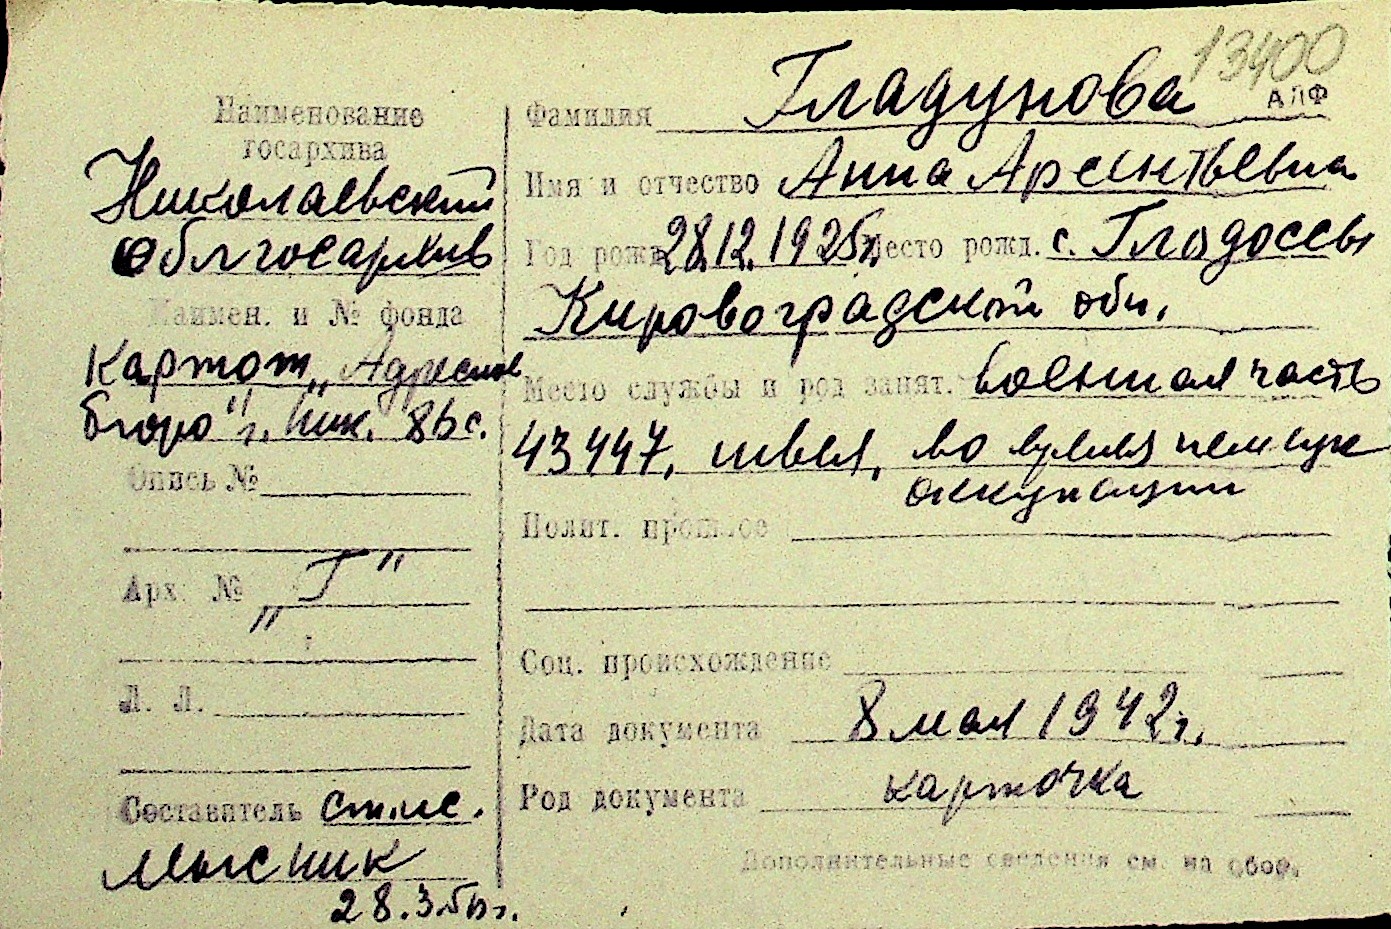 13400
АЛФ
Наименование
госархива
Николаевский
облгосархив
Наимен. и № фонда
Картот. „Адресное
бюро" г. Ник.
Опись №
Арх. № „Г"
Л. Л.
Составитель ст.
Мысник
28.3.
Фамилия Гладунова
Имя и отчество Анна Арсентьевна
Год рожд. 28.12.1925г. Место рожд. с. Глодоссы
Кировоградской обл.
Место службы и род занят. Военная часть
43447, швея, во время немецк
оккупации
Полит. прошлое
Соц. происхождение
Дата документа 8 мая 1942г.
Род документа карточка
Дополнительные сведения см. на обор.